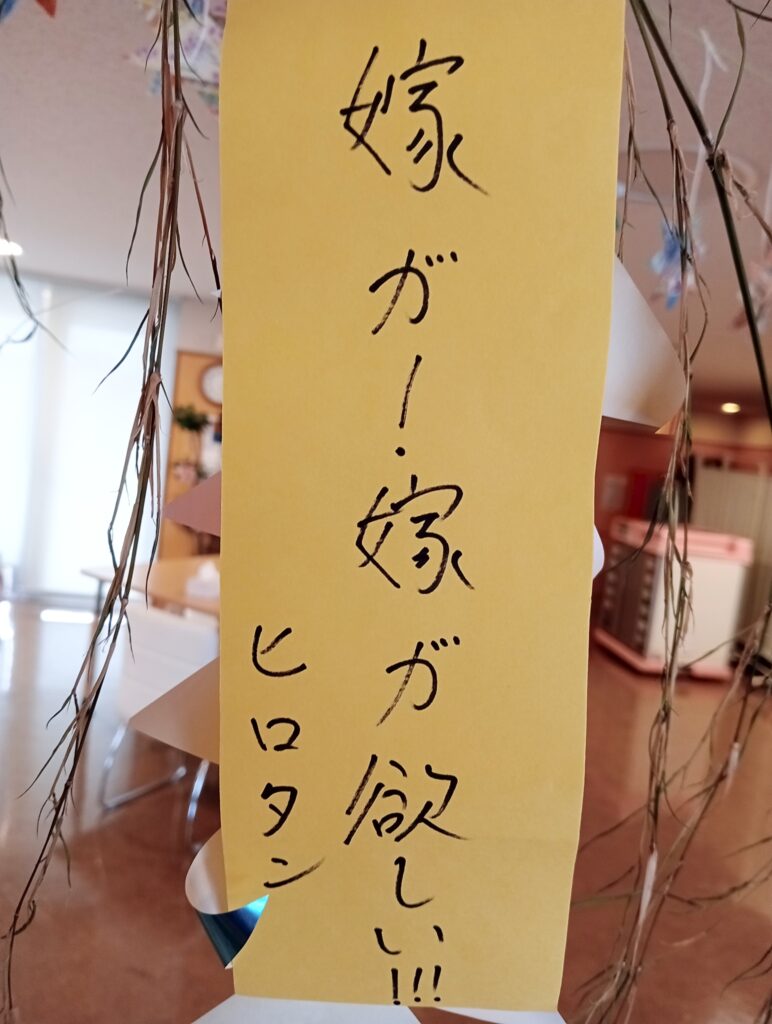 嫁がー・嫁が欲しい!!!
ヒロタン